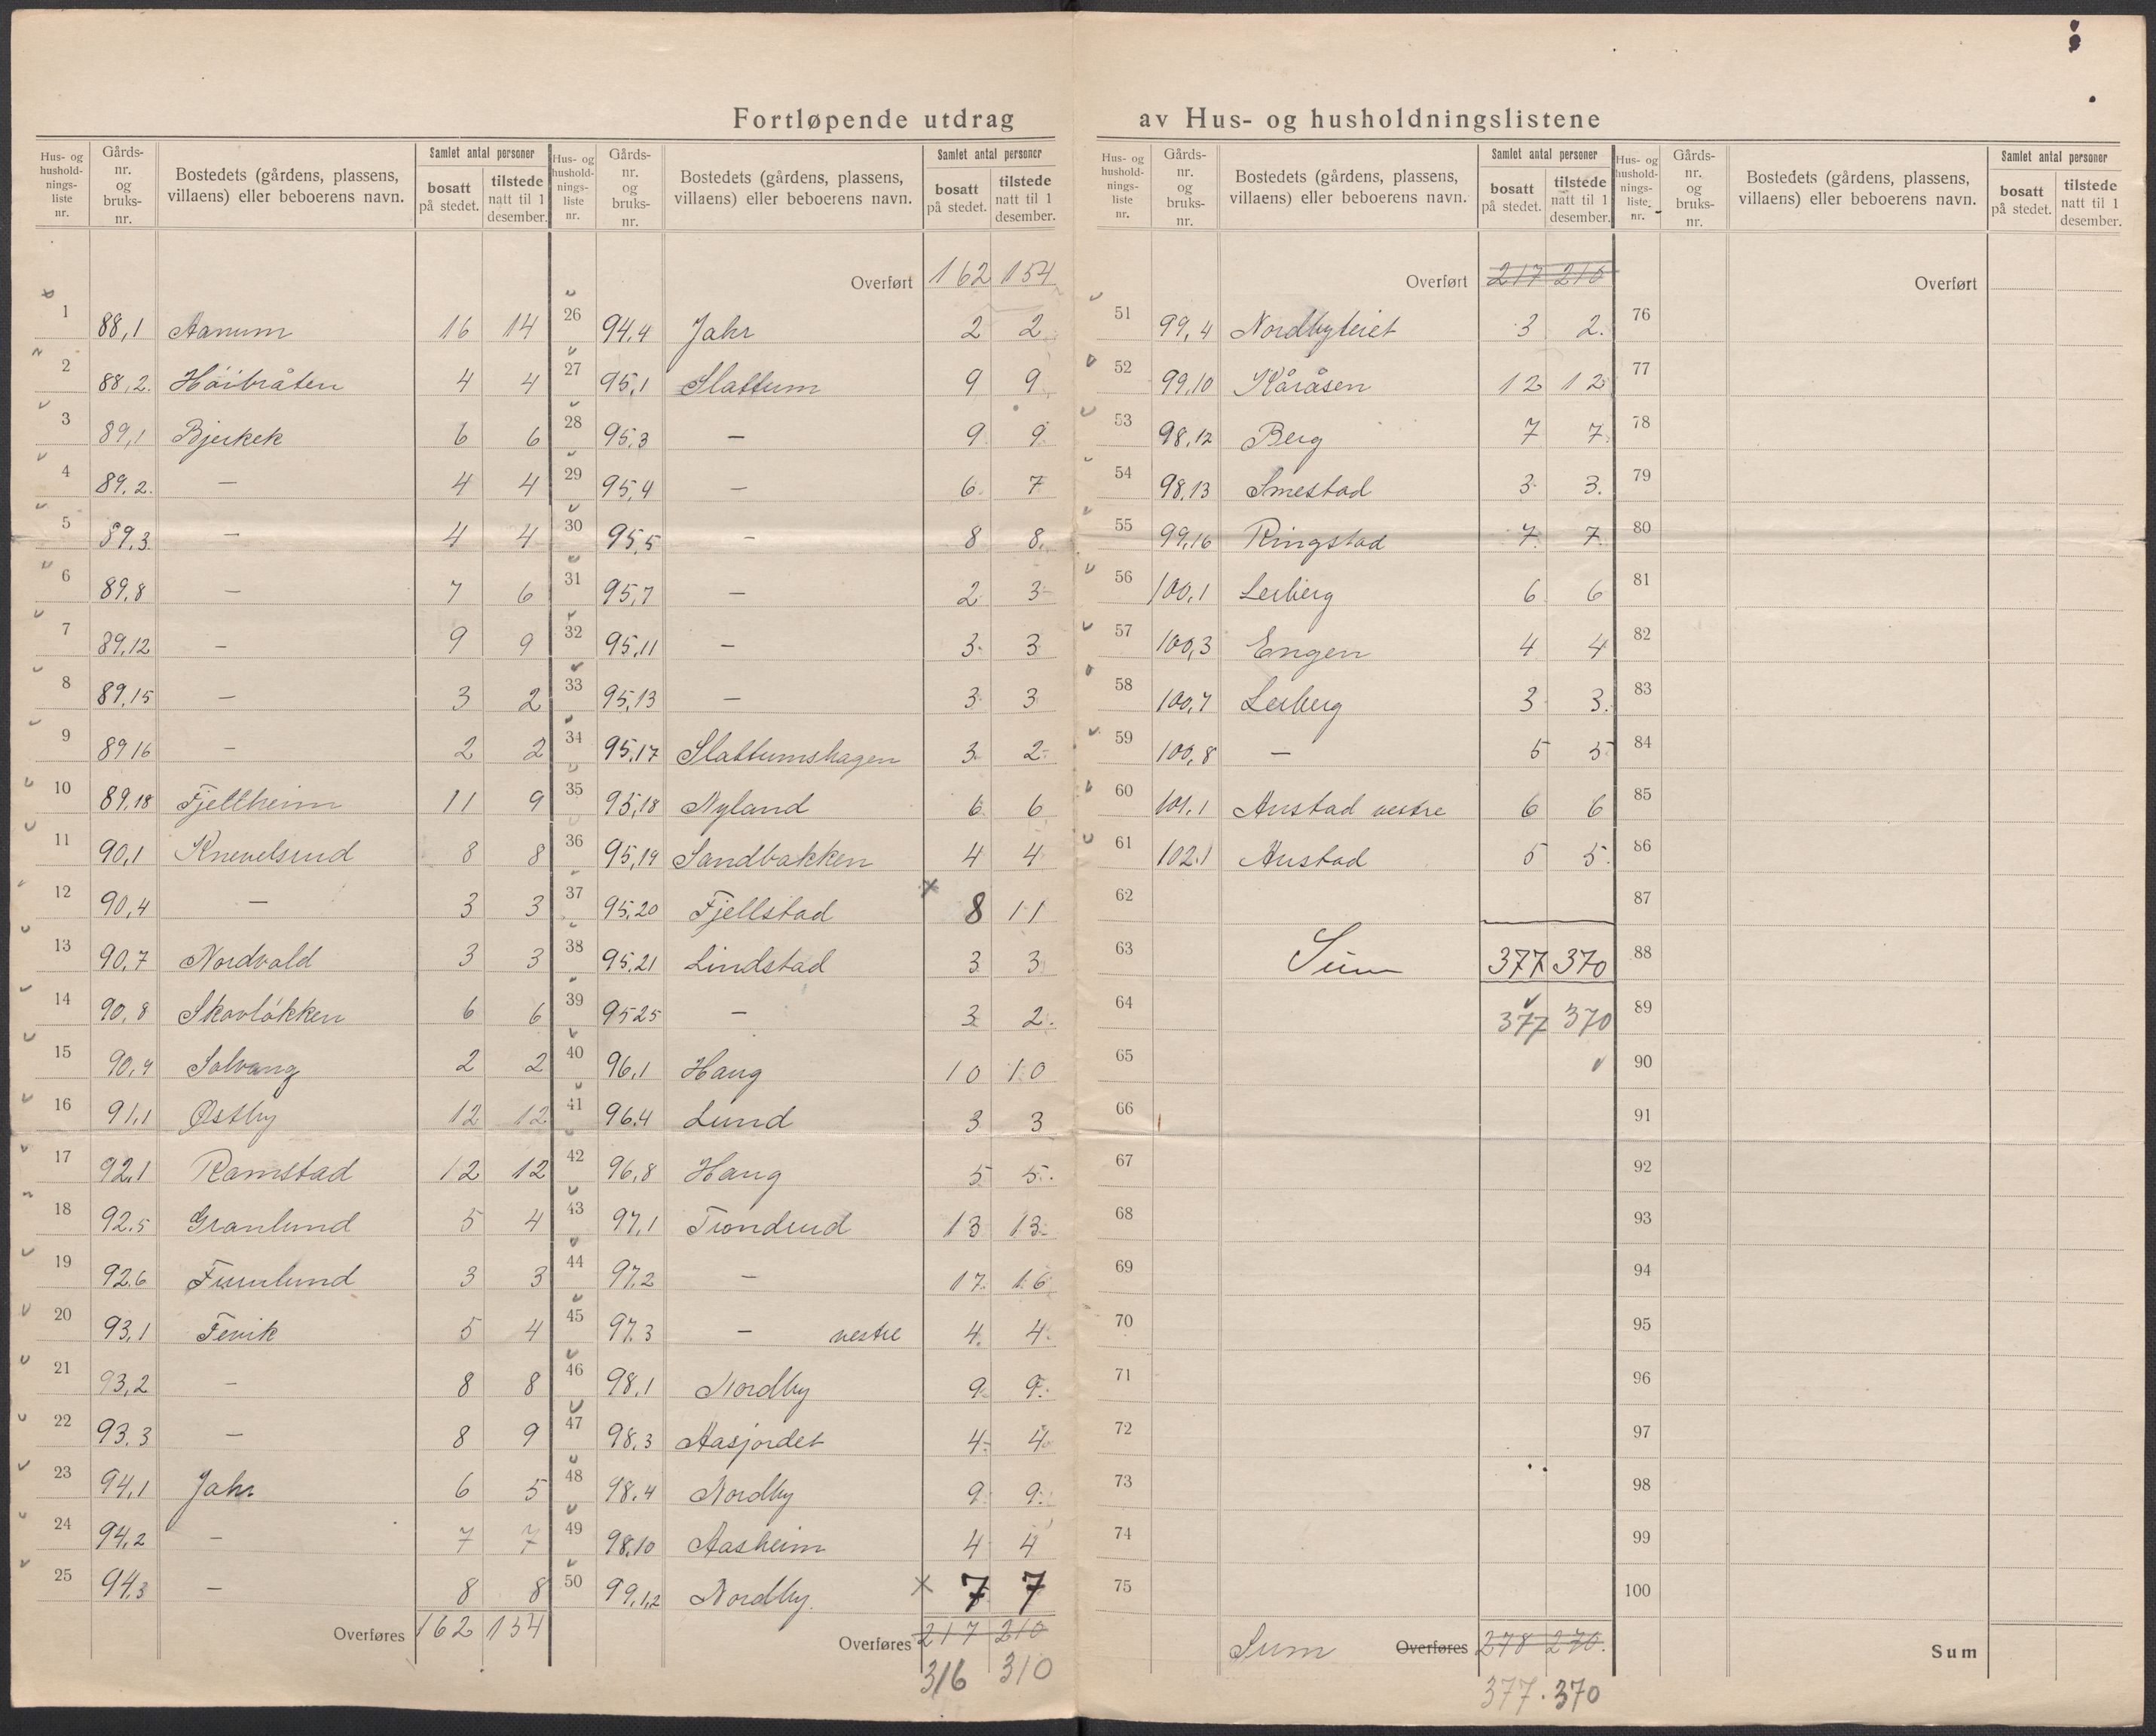 Fortløpende utdrag av Hus- og husholdningslistene
Hus- og husholdningsliste nr.
Gårds-nr. og bruks-nr.
Bostedets (gårdens, plassens, villaens) eller beboerens navn.
Samlet antal personer
bosatt på stedet.
tilstede natt til 1 desember.
1 88,1 Aanum 16 14
2 88,2. Höibråten 4 4
3 89,1 Bjerkek 6 6
4 89,2. — 4 4
5 89,3 — 4 4
6 89,8 — 7 6
7 89,12 — 9 9
8 89,15 — 3 2
9 89 16 — 2 2
10 89,18 Fjellheim 11 9
11 90,1 Knevelsrud 8 8
12 90,4 — 3 3
13 90,7 Nordvald 3 3
14 90,8 Skovløkken 6 6
15 90,9 Solvang 2 2
16 91,1 Østby 12 12
17 92,1 Ramstad 12 12
18 92.5 Granlund 5 4
19 92.6 Furulund 3 3
20 93,1 Fevik 5 4
21 93,2 — 8 8
22 93.3 — 8 9
23 94,1 Jahr 6 5
24 94,2 — 7 7
25 94.3 — 8 8
Overføres 162 154
Hus- og husholdningsliste nr.
Gårds-nr. og bruks-nr.
Bostedets (gårdens, plassens, villaens) eller beboerens navn.
Samlet antal personer
bosatt på stedet.
tilstede natt til 1 desember.
Overført 162 154
26 94,4 Jahr 2 2
27 95,1 Slattum 9 9
28 95,3 — 9 9
29 95,4 — 6 7
30 95,5 — 8 8
31 95,7 — 2 3
32 95,11 — 3 3
33 95,13 — 3 3
34 95,17 Slattumshagen 3 2
35 95,18 Nyland 6 6
36 95,19 Sandbakken 4 4
37 95,20 Fjellstad × 8 11
38 95,21 Lindstad 3 3
39 95 25 — 3 2.
40 96,1 Haug 10 10
41 96.4 Lund 3 3
42 96,8 Haug 5 5.
43 97,1 Trondrud 13 13
44 97,2 — 17 16
45 97.3 — vestre 4 4
46 98,1 Nordby 9 9
47 98,3 Aasjordet 4 4
48 98,4 Nordby 9 9
49 98,10 Aasheim 4 4
50 99,1,2 Nordby. × 7 7
Overføres 217 210
316 310
Hus- og husholdningsliste nr.
Gårds-nr. og bruks-nr.
Bostedets (gårdens, plassens, villaens) eller beboerens navn.
Samlet antal personer
bosatt på stedet.
tilstede natt til 1 desember.
Overført 217 210
51 99,4 Nordbyteiet 3 2.
52 99,10 Kåråsen 12 12
53 98,12 Berg 7 7
54 98,13 Smestad 3 3.
55 99,16 Ringstad 7 7
56 100,1 Lerberg 6 6
57 100,3 Engen 4 4
58 100,7 Lerberg 3 3.
59 100,8 — 5 5
60 101,1 Austad vestre 6 6
61 102.1 Austad 5 5.
62
63 Sum 377 370
64 377 370
65
66
67
68
69
70
71
72
73
74
75
Sum Overføres 278 270.
377. 370
Hus- og husholdningsliste nr.
Gårds-nr. og bruks-nr.
Bostedets (gårdens, plassens, villaens) eller beboerens navn.
Samlet antal personer
bosatt på stedet.
tilstede natt til 1 desember.
Overført
76
77
78
79
80
81
82
83
84
85
86
87
88
89
90
91
92
93
94
95
96
97
98
99
100
Sum